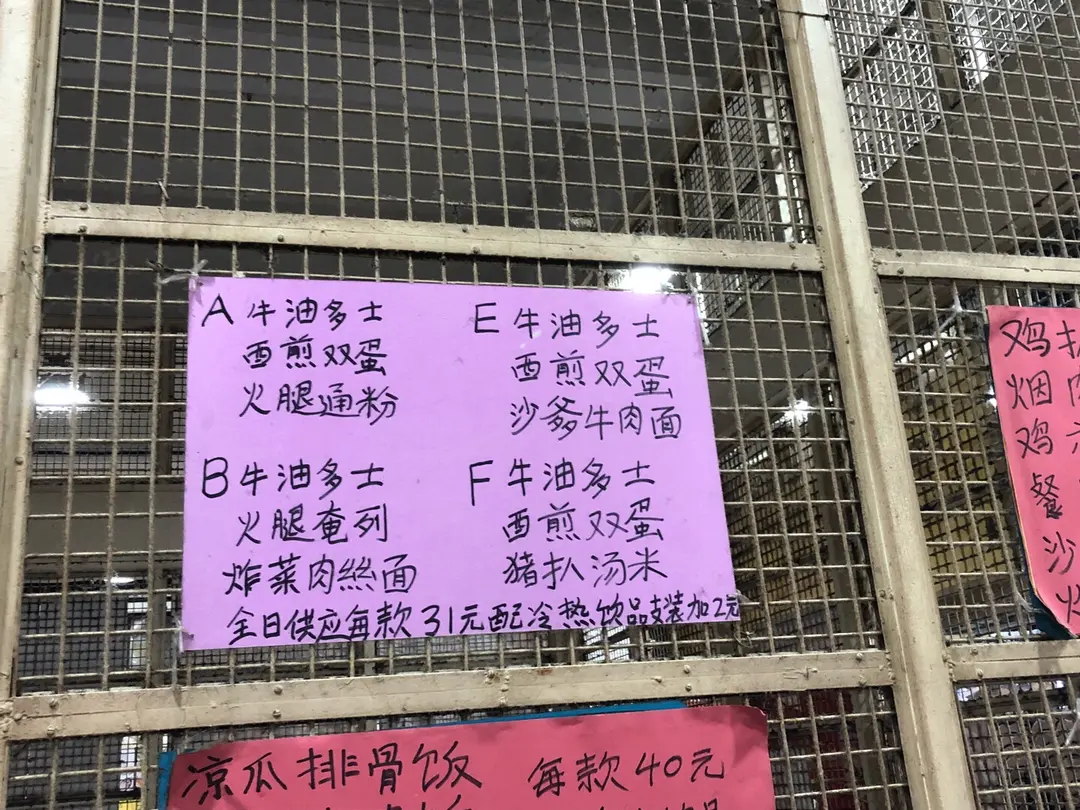 A 牛油多士
西煎双蛋
火腿通粉
B 牛油多士
火腿奄列
炸菜肉絲面
E 牛油多士
西煎双蛋
沙爹牛肉面
F 牛油多士
西煎双蛋
猪扒汤米
全日供应每款31元配冷热饮品支装加2元
凉瓜排骨饭 每款40元
鸡扒
烟肉
鸡
餐
沙